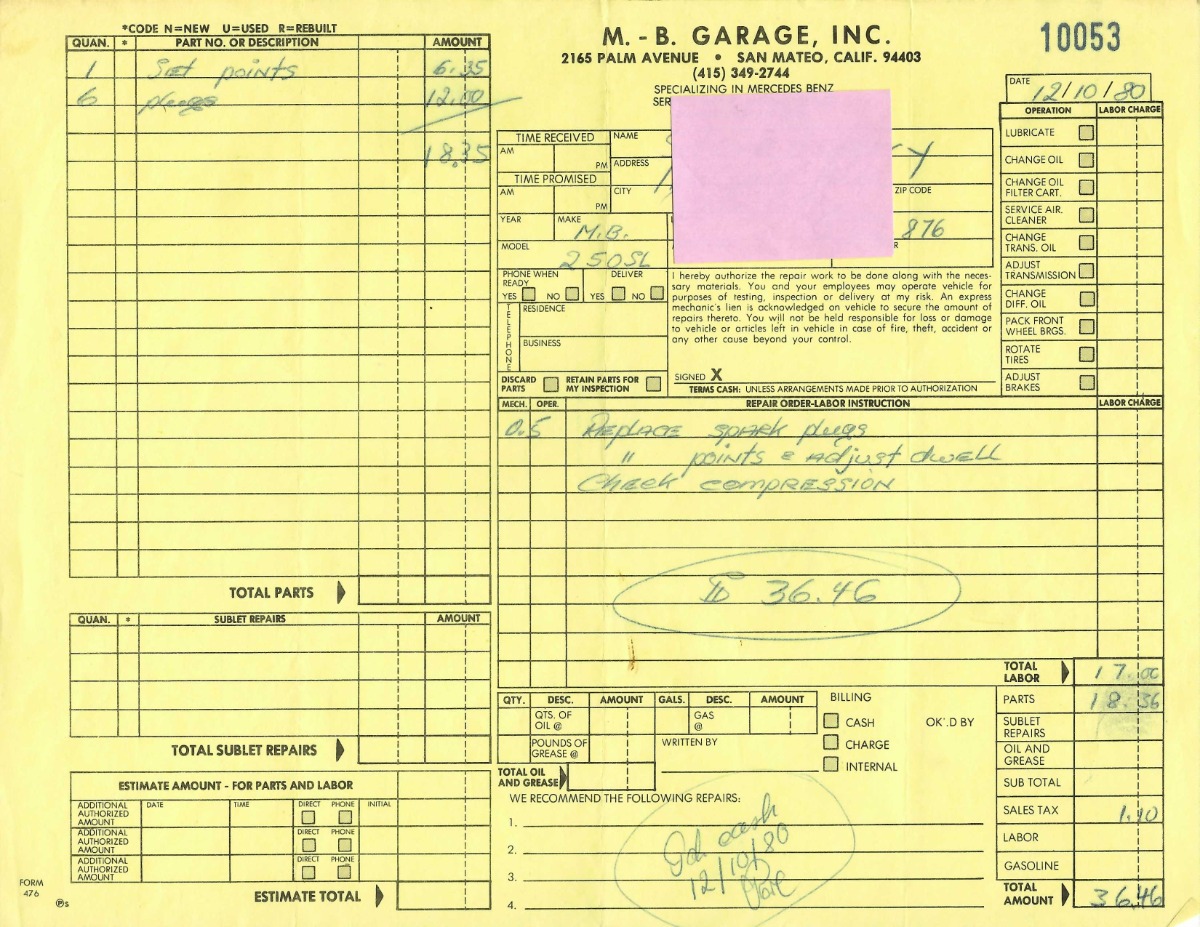 *CODE N=NEW U=USED R=REBUILT
QUAN. * PART NO. OR DESCRIPTION AMOUNT
1 Set points 6.35
6 plugs 12.00
18.35
TOTAL PARTS
QUAN. * SUBLET REPAIRS AMOUNT
TOTAL SUBLET REPAIRS
ESTIMATE AMOUNT - FOR PARTS AND LABOR
ADDITIONAL AUTHORIZED AMOUNT DATE TIME DIRECT PHONE INITIAL
ADDITIONAL AUTHORIZED AMOUNT DIRECT PHONE
ADDITIONAL AUTHORIZED AMOUNT DIRECT PHONE
ESTIMATE TOTAL
FORM 476
M. - B. GARAGE, INC.
2165 PALM AVENUE • SAN MATEO, CALIF. 94403
(415) 349-2744
SPECIALIZING IN MERCEDES BENZ
SER
10053
DATE 12/10/80
TIME RECEIVED NAME
AM PM ADDRESS Y
TIME PROMISED
AM PM CITY ZIP CODE
YEAR MAKE M.B. 876
MODEL 250SL
PHONE WHEN READY DELIVER
YES NO YES NO
TELEPHONE
RESIDENCE
BUSINESS
DISCARD PARTS RETAIN PARTS FOR MY INSPECTION
I hereby authorize the repair work to be done along with the neces-
sary materials. You and your employees may operate vehicle for
purposes of testing, inspection or delivery at my risk. An express
mechanic's lien is acknowledged on vehicle to secure the amount of
repairs thereto. You will not be held responsible for loss or damage
to vehicle or articles left in vehicle in case of fire, theft, accident or
any other cause beyond your control.
SIGNED X
TERMS CASH: UNLESS ARRANGEMENTS MADE PRIOR TO AUTHORIZATION
OPERATION LABOR CHARGE
LUBRICATE
CHANGE OIL
CHANGE OIL FILTER CART.
SERVICE AIR. CLEANER
CHANGE TRANS. OIL
ADJUST TRANSMISSION
CHANGE DIFF. OIL
PACK FRONT WHEEL BRGS.
ROTATE TIRES
ADJUST BRAKES
MECH. OPER. REPAIR ORDER-LABOR INSTRUCTION LABOR CHARGE
0.5 Replace spark plugs
" points & adjust dwell
Check compression
$ 36.46
TOTAL LABOR 17.00
QTY. DESC. AMOUNT GALS. DESC. AMOUNT
QTS. OF OIL @ GAS @
POUNDS OF GREASE @ WRITTEN BY
TOTAL OIL AND GREASE
BILLING
CASH OK'.D BY
CHARGE
INTERNAL
PARTS 18.36
SUBLET REPAIRS
OIL AND GREASE
SUB TOTAL
SALES TAX 1.10
LABOR
GASOLINE
TOTAL AMOUNT 36.46
WE RECOMMEND THE FOLLOWING REPAIRS:
1.
2.
3.
4.
cash
12/10/80